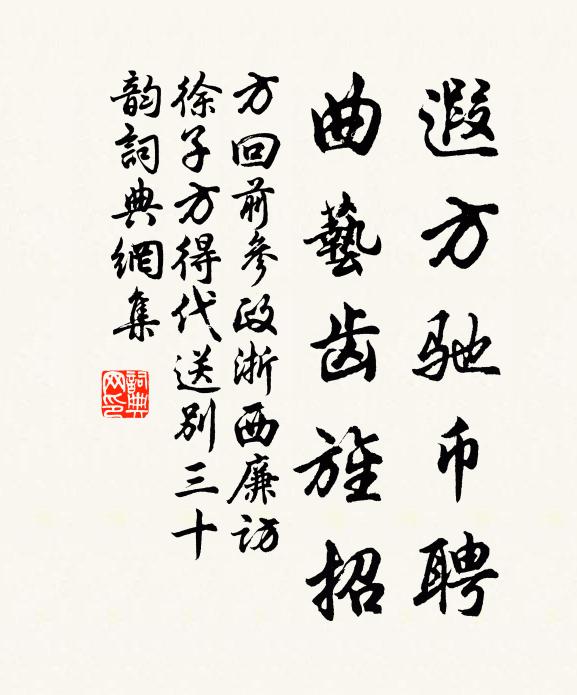 遐方驰币聘
曲藝齿旌招
方回前参政浙西廉访
徐子方得代送别三十
韵詞典網集
詞典网印